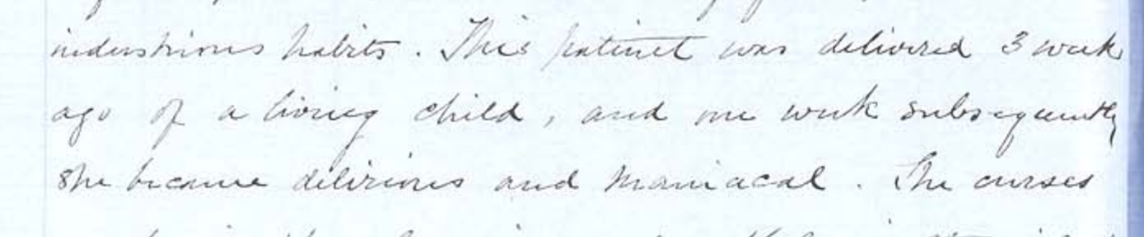 industrious habits. This patient was delivered 3 week
ago of a living child, and one week subsequently
she became delirious and maniacal. She curses